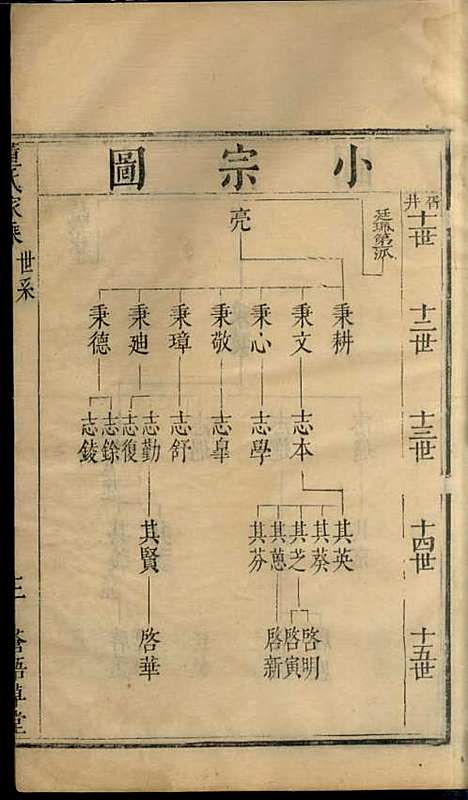 小宗圖
胥井
十一世
十二世
十三世
十四世
十五世
廷珮第派
亮
秉耕
秉文
秉心
秉敬
秉璋
秉廸
秉德
志本
志學
志皐
志舒
志勤
志復
志錂
其英
其葵
其芝
其蒽
其芬
其賢
啓明
啓寅
啓新
啓華
氏家乘
世系
三
草堂